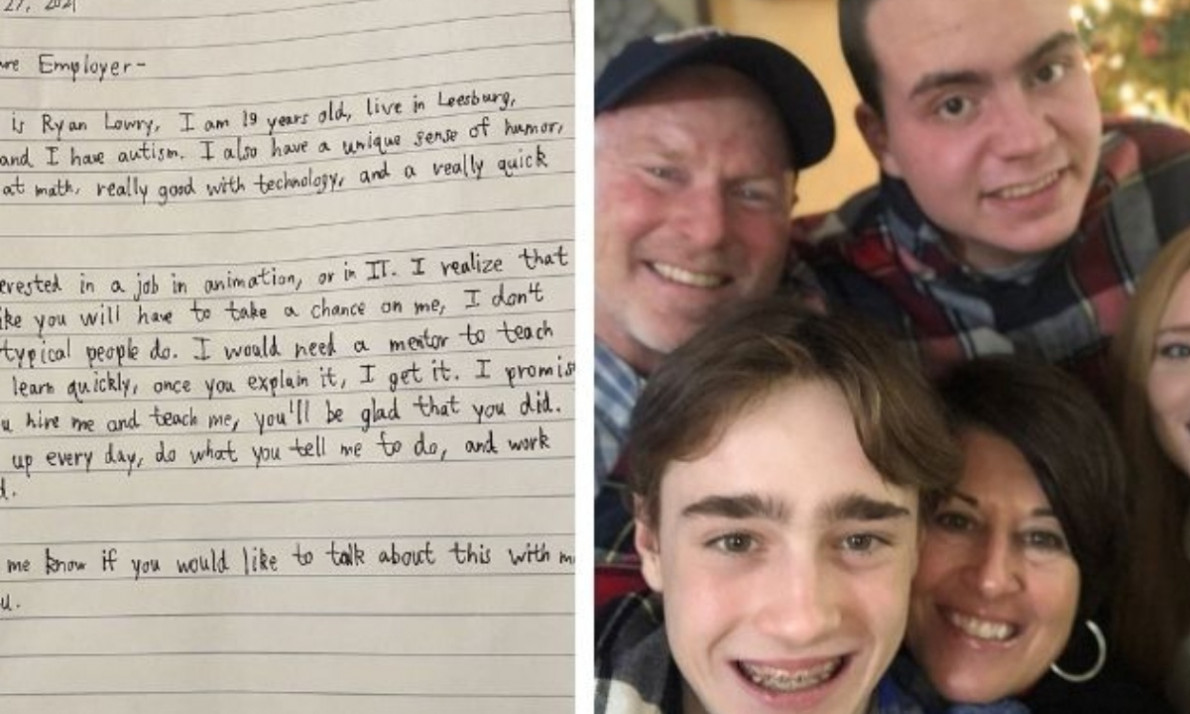 27, 2021
Employer-
is Ryan Lowry, I am 19 years old, live in Leesburg,
and I have autism. I also have a unique sense of humor,
at math, really good with technology, and a really quick
in a job in animation, or in IT. I realize that
you will have to take a chance on me, I don't
typical people do. I would need a mentor to teach
learn quickly, once you explain it, I get it. I promis
hire me and teach me, you'll be glad that you did.
up every day, do what you tell me to do, and work
me know if you would like to talk about this with m